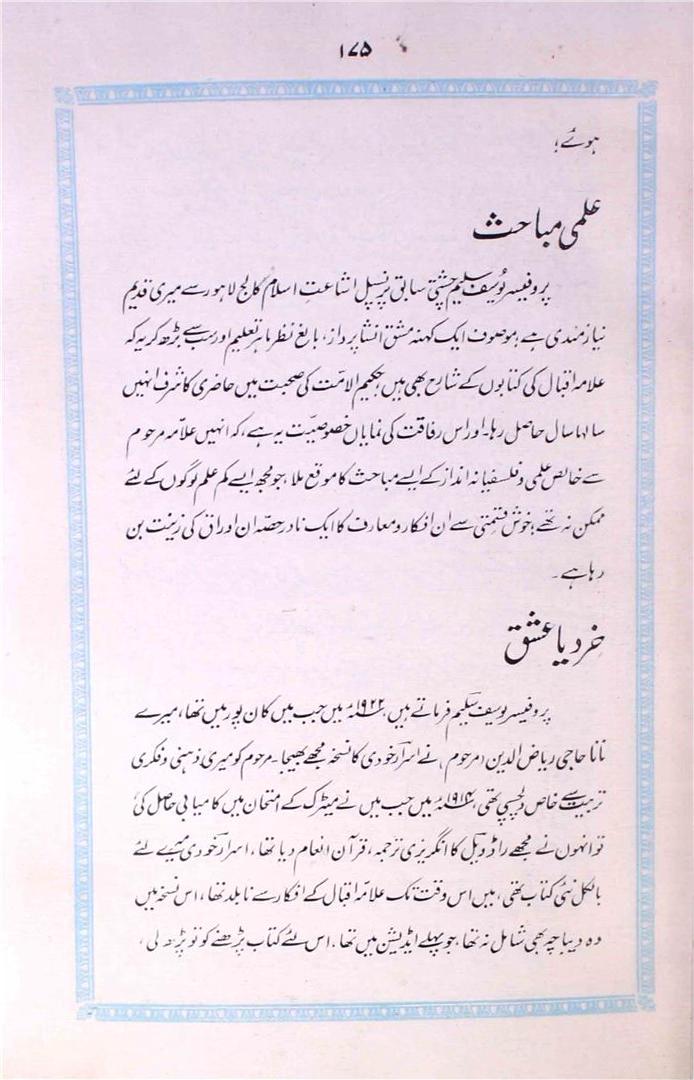 ۱۷۵
ہوئے؛
علمی مباحث
پروفیسر یُوسف سلیم چشتی سابق پرنسپل اشاعتِ اسلام کالج لاہور سے میری قدیم
نیاز مندی ہے، موصوف ایک کہنہ مشق انشا پرداز، بالغ نظر ماہر تعلیم اور سب سے بڑھ کر یہ کہ
علامہ اقبال کی کتابوں کے شارح بھی ہیں، حکیم الامّت کی صحبت میں حاضری کا شرف انہیں
سالہا سال حاصل رہا۔ اور اس رفاقت کی نمایاں خصوصیّت یہ ہے، کہ انہیں علاّمہ مرحوم
سے خالص علمی و فلسفیانہ انداز کے ایسے مباحث کا موقع ملا، جو مجھ ایسے کم علم لوگوں کے لئے
ممکن نہ تھے؛ خوش قسمتی سے ان افکار و معارف کا ایک نادر حصّہ ان اوراق کی زینت بن
رہا ہے۔
خرد یا عشق
پروفیسر یوسف سلیم فرماتے ہیں، ۱۹۲۲ء میں جب میں کان پور میں تھا، میرے
نانا حاجی ریاض الدین (مرحوم) نے اسرار خودی کا نسخہ مجھے بھیجا۔ مرحوم کو میری ذہنی و فکری
تربیت سے خاص دلچسپی تھی، ۱۹۱۴ء میں جب میں نے میٹرک کے امتحان میں کامیابی حاصل کی
تو انہوں نے مجھے راڈویل کا انگریزی ترجمہ، قرآن انعام دیا تھا، اسرار خودی میرے لئے
بالکل نئی کتاب تھی، میں اس وقت تک علامہ اقبال کے افکار سے نابلد تھا، اس نسخہ میں
وہ دیباچہ بھی شامل نہ تھا، جو پہلے ایڈیشن میں تھا۔ اس لئے کتاب پڑھنے کو تو پڑھ لی،